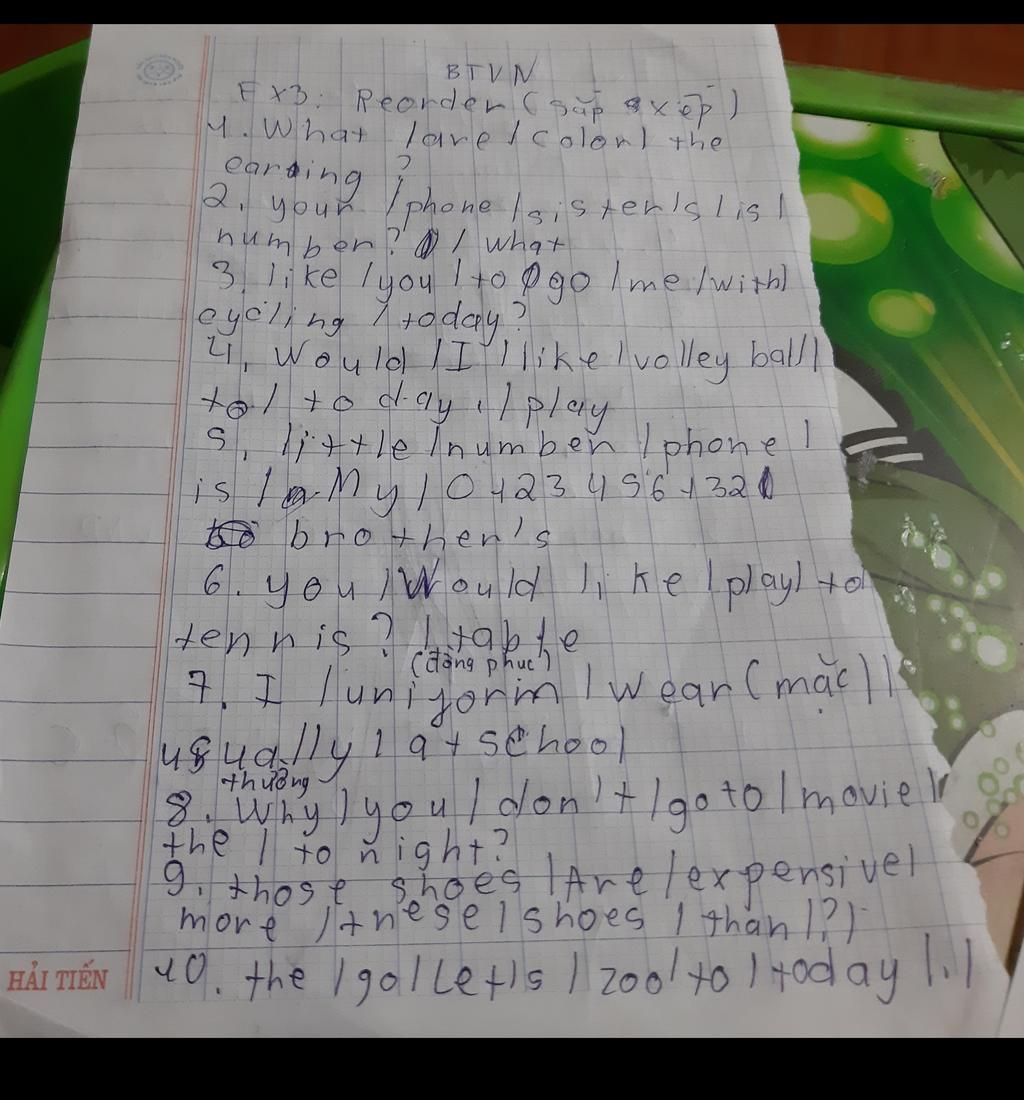 BTVN
EX3: Reorder (sắp xếp)
1. What /are / color / the
earing ?
2. your /phone /sister's /is /
number? / what
3. like /you / to go /me /with/
cycling / today?
4. Would /I / like /volley ball/
to / to day . / play
5. little /number /phone /
is / My / 0123456132
brother's
6. you /Would like /play/ to
tennis? / table
(đồng phuc)
7. I /uniform / wear (mặc) /
usually / at school
thường
8. Why / you / don't /go to / movie /
the / to night?
9. those shoes /Are /expensive/
more /these / shoes / than /?/
10. the /go/ Let's / zoo / to / today /./
HẢI TIẾN